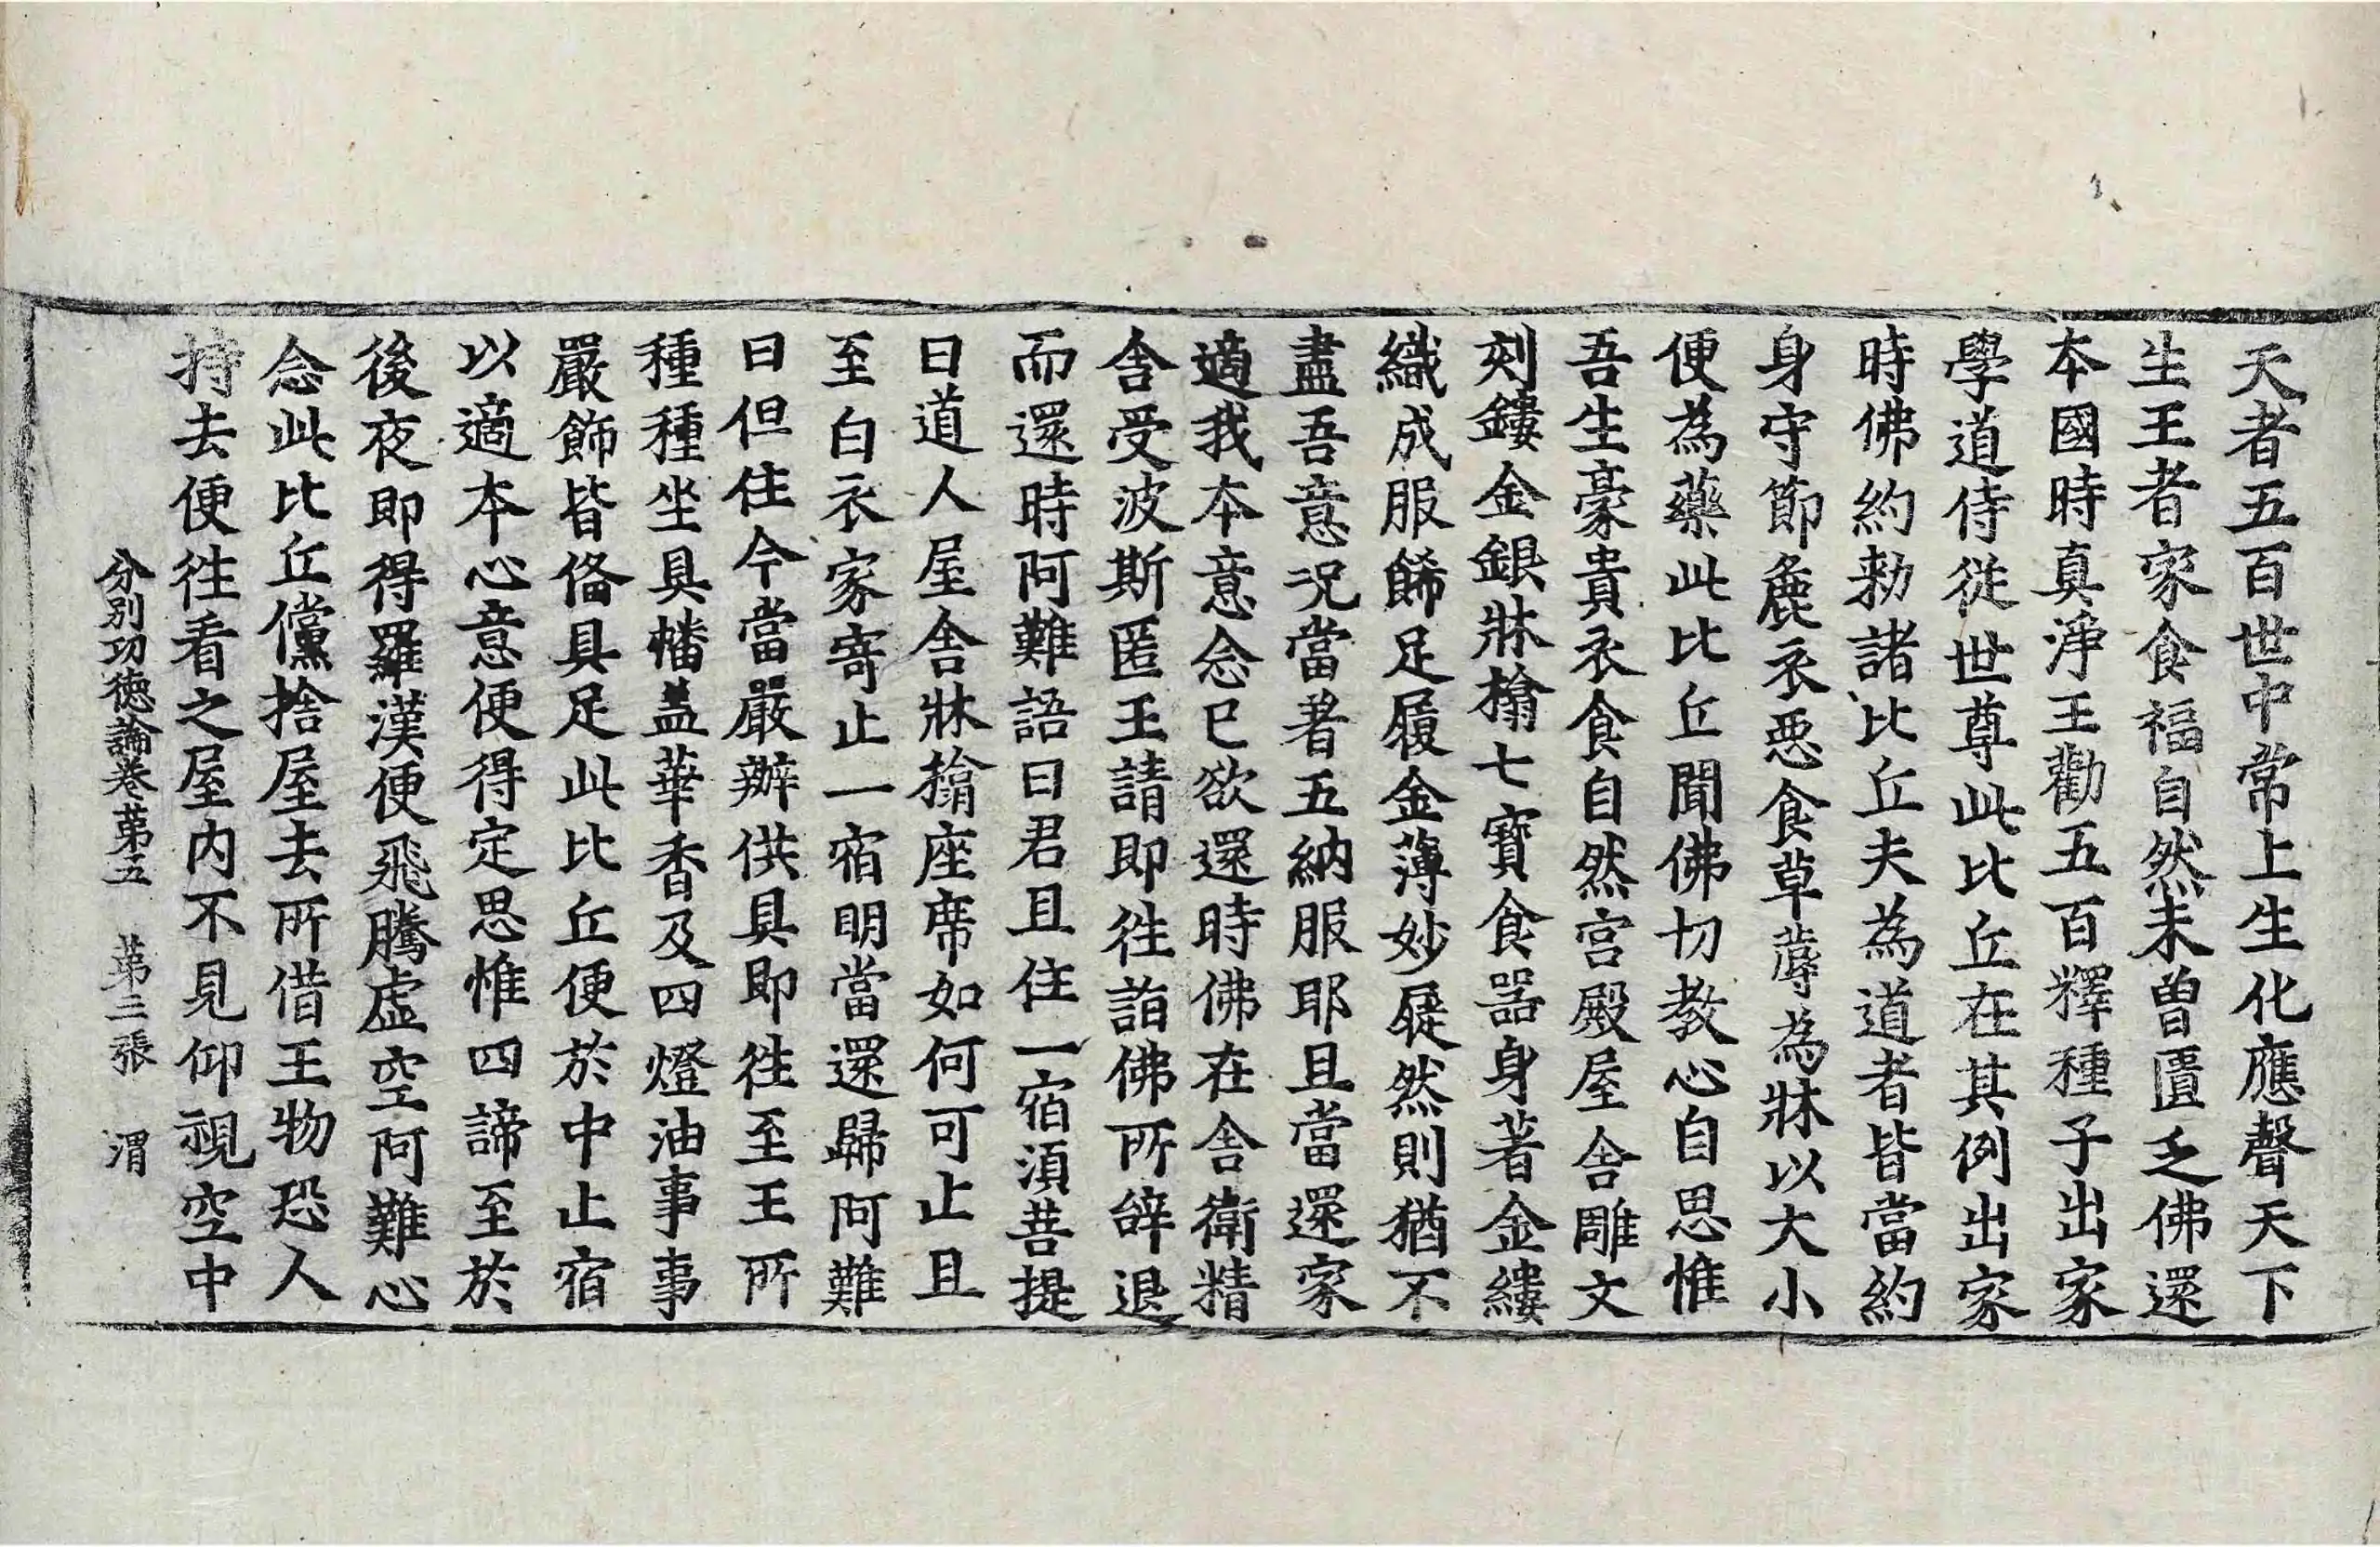 天者五百世中常上生化應聲天下
生王者家食福自然未曽匱乏佛還
本國時真淨王勸五百釋種子出家
學道侍從世尊此比丘在其例出家
時佛約勑諸比丘夫為道者皆當約
身守節麁衣惡食草蓐為牀以大小
便為藥此比丘聞佛切教心自思惟
吾生豪貴衣食自然宮殿屋舍雕文
刻鏤金銀牀榻七寶食器身著金縷
織成服飾足履金薄妙屣然則猶不
盡吾意況當著五納服耶且當還家
適我本意念已欲還時佛在舍衛精
舍受波斯匿王請即徃詣佛所辝退
而還時阿難語曰君且住一宿湏菩提
曰道人屋舍牀榻座席如何可止且
至白衣家寄止一宿明當還歸阿難
曰但住今當嚴辦供具即徃至王所
種種坐具幡盖華香及四燈油事事
嚴飾皆俻具足此比丘便於中止宿
以適本心意便得定思惟四諦至於
後夜即得羅漢便飛騰虛空阿難心
念此比丘儻捨屋去所借王物恐人
持去便徃看之屋内不見仰視空中
分別功德論卷苐五　苐二張　渭